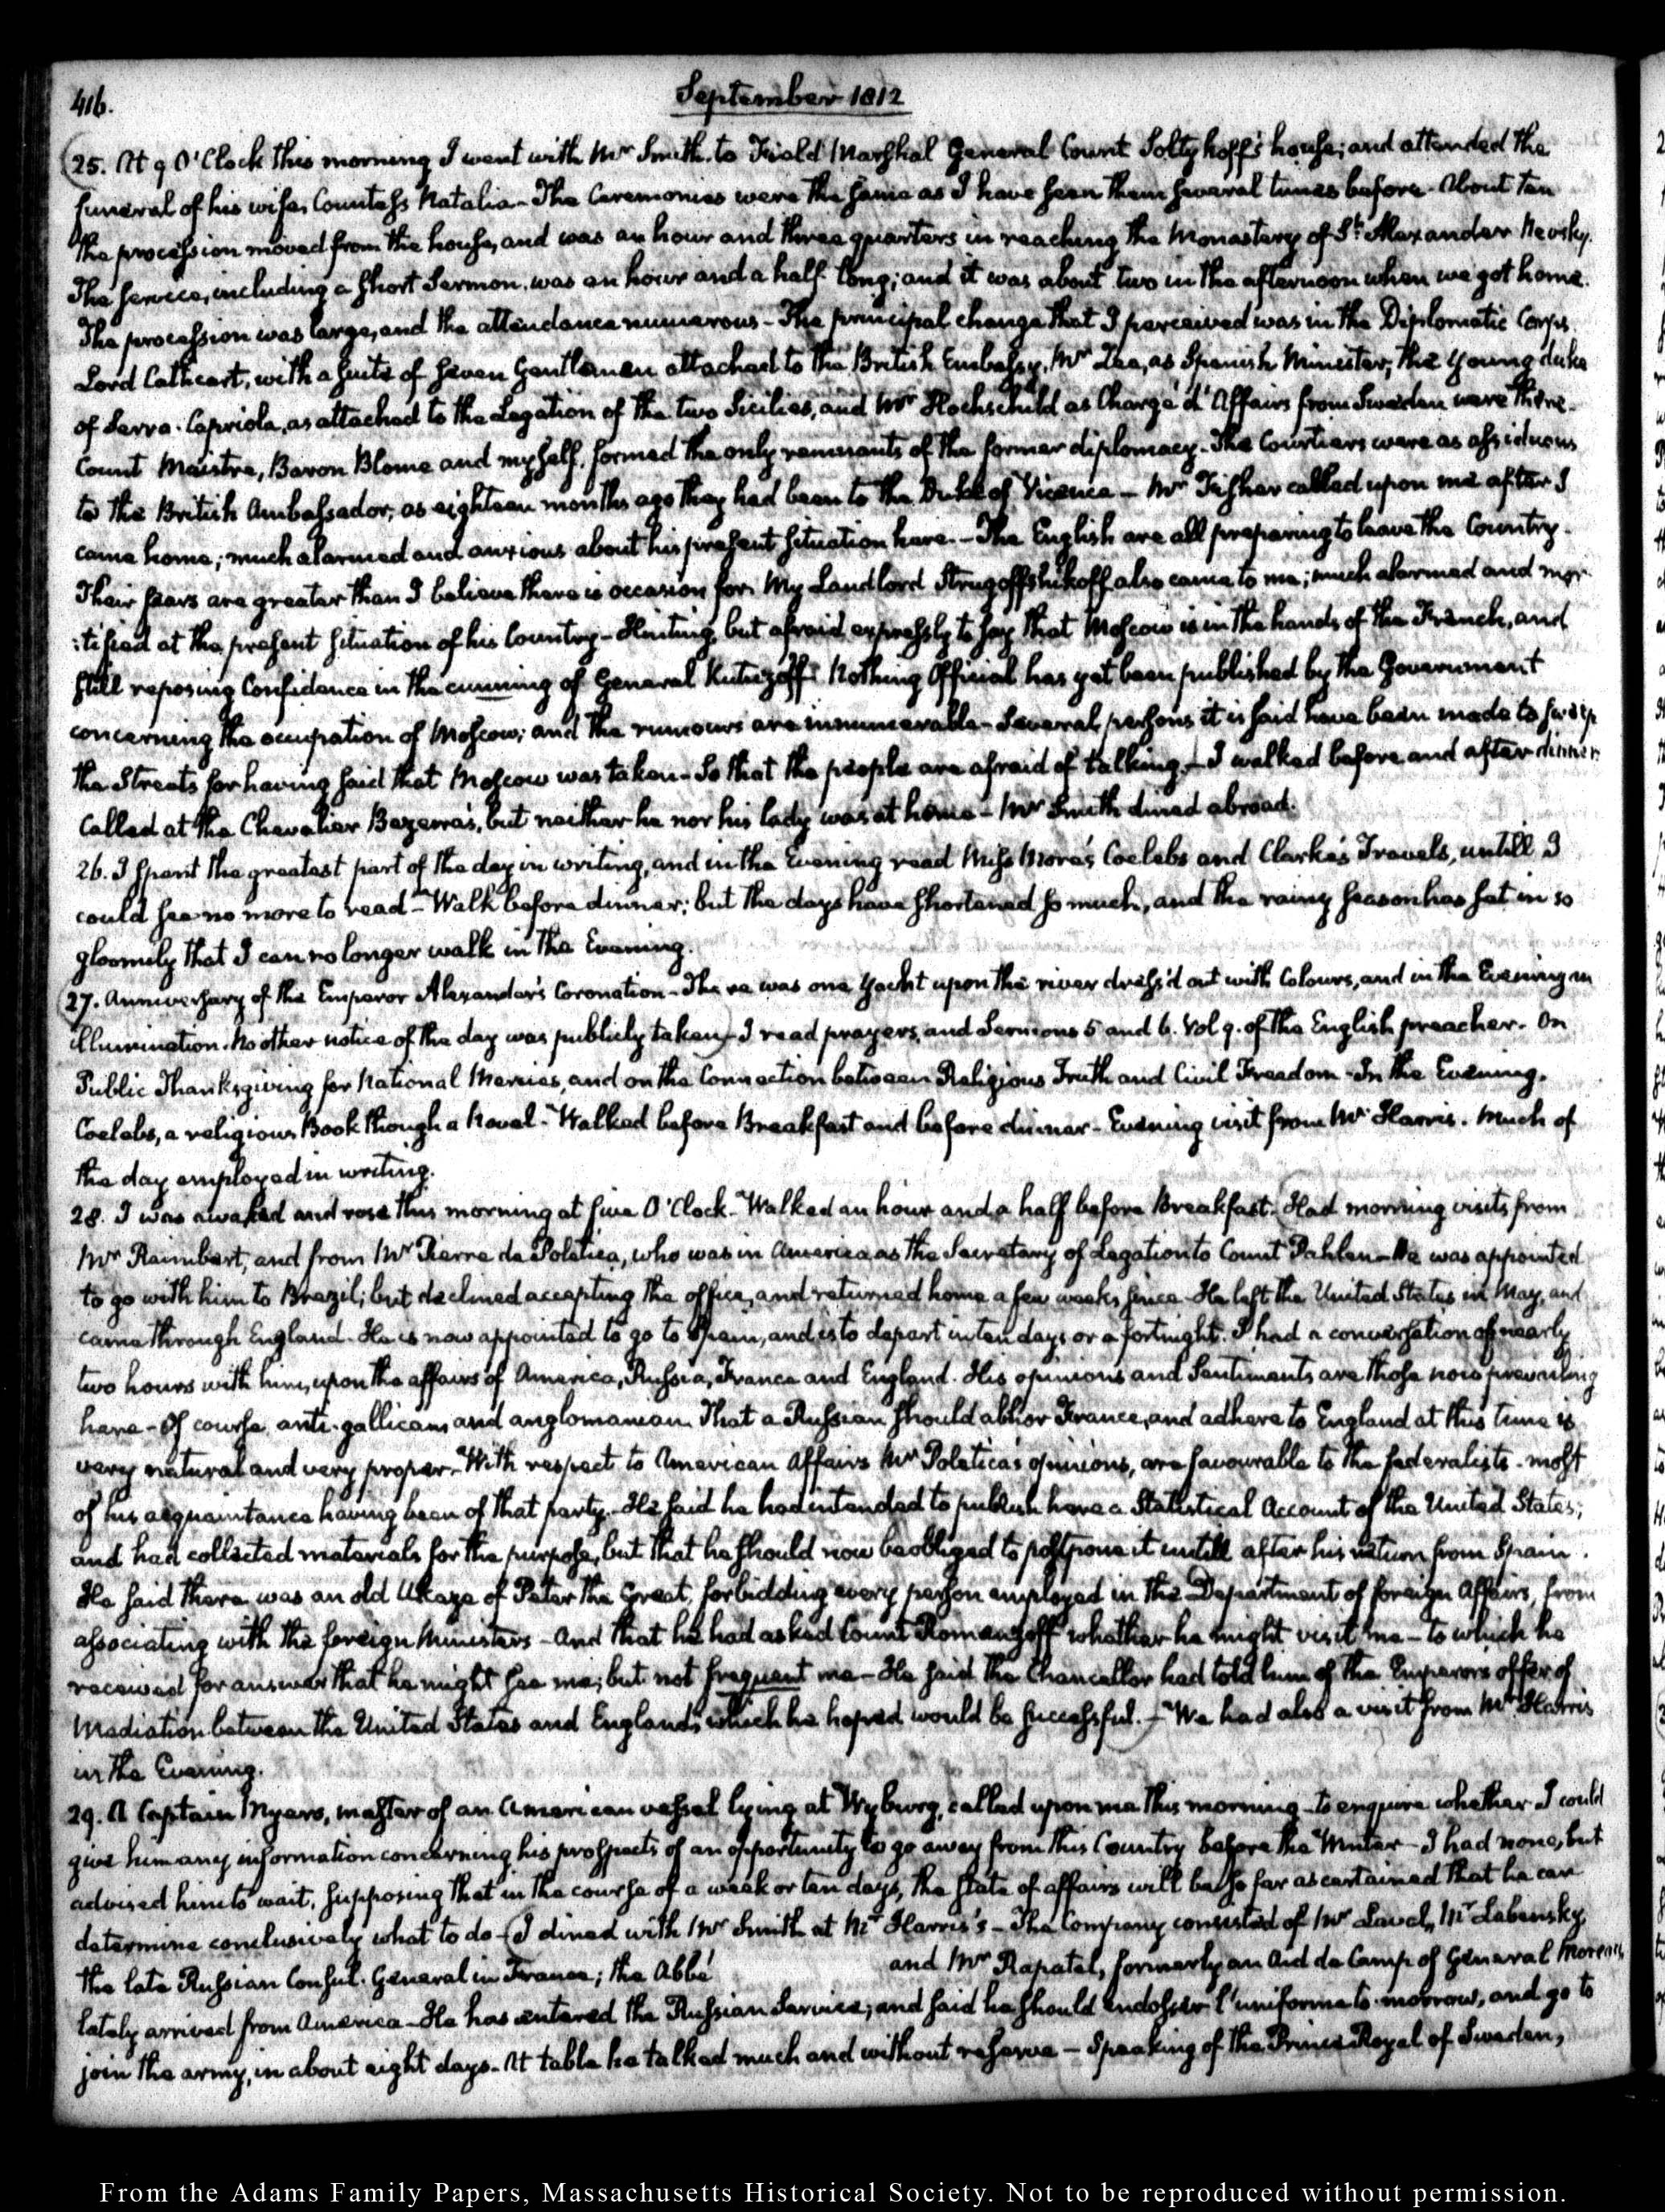 416.
September 1812
25. At 9 O'Clock this morning I went with Mr Smith to Field Marshal General Count Soltykoff's house; and attended the
funeral of his wife, Countess Natalia - The Ceremonies were the same as I have seen them several times before - About ten
the procession moved from the house, and was an hour and three quarters in reaching the Monastery of St. Alexander Nevsky.
The service, including a short Sermon, was an hour and a half long; and it was about two in the afternoon when we got home.
The procession was large, and the attendance numerous - The principal change that I perceived was in the Diplomatic Corps.
Lord Cathcart, with a suite of seven Gentlemen attached to the British Embassy, Mr Zea, as Spanish Minister, the young duke
of Serra-Capriola, as attached to the Legation of the two Sicilies, and Mr Hochschild as Chargé d'Affairs from Sweden were there.
Count Maistre, Baron Blome and myself, formed the only remnants of the former diplomacy. The Courtiers were as assiduous
to the British Ambassador, as eighteen months ago they had been to the Duke of Vicence - Mr Fisher called upon me after I
came home; much alarmed and anxious about his present situation here. - The English are all preparing to leave the Country.
Their fears are greater than I believe there is occasion for. My Landlord Strugoffshikoff also came to me; much alarmed and mor-
:tified at the present situation of his Country - Hinting, but afraid expressly to say that Moscow is in the hands of the French, and
still reposing Confidence in the cunning of General Kutuzoff. Nothing Official has yet been published by the Government
concerning the occupation of Moscow; and the rumours are innumerable - Several persons it is said have been made to sweep
the Streets for having said that Moscow was taken - So that the people are afraid of talking. - I walked before and after dinner
Called at the Chevalier Bezerra's, but neither he nor his lady was at home - Mr Smith dined abroad.
26. I spent the greatest part of the day in writing, and in the Evening read Miss More's Coelebs and Clarke's Travels, untill I
could see no more to read - Walk before dinner; but the days have shortened so much, and the rainy season has set in so
gloomily that I can no longer walk in the Evening.
27. Anniversary of the Emperor Alexander's Coronation - There was one yacht upon the river dress'd out with Colours, and in the Evening an
illumination. No other notice of the day was publicly taken) - I read prayers, and Sermons 5 and 6. Vol 9. of the English preacher - On
Public Thanksgiving for National Mercies, and on the Connection between Religious Truth and Civil Freedom - In the Evening,
Coelebs, a religious Book though a Novel - Walked before Breakfast and before dinner - Evening visit from Mr Harris. Much of
the day employed in writing.
28. I was awaked and rose this morning at five O'Clock - Walked an hour and a half before Breakfast. (Had morning visits from
Mr Raimbert, and from Mr Pierre de Poletica, who was in America as the Secretary of Legation to Count Pahlen - He was appointed
to go with him to Brazil; but declined accepting the office, and returned home a few weeks since - He left the United States in May, and
came through England. He is now appointed to go to Spain, and is to depart in ten days or a fortnight. I had a conversation of nearly
two hours with him, upon the affairs of America, Russia, France and England. His opinions and Sentiments are those now prevailing
here - Of course anti-gallican and anglomanian. That a Russian should abhor France, and adhere to England at this time is
very natural and very proper - With respect to American Affairs Mr Poletica's opinions, are favourable to the federalists - most
of his acquaintance having been of that party. - He said he had intended to publish here a Statistical Account of the United States;
and had collected materials for the purpose, but that he should now be obliged to postpone it untill after his return from Spain.
He said there was an old Ukaze of Peter the Great, forbidding every person employed in the Department of foreign Affairs, from
associating with the foreign Ministers - And that he had asked Count Romanzoff whether he might visit me - to which he
received for answer that he might see me; but not frequent me - He said the Chancellor had told him of the Emperor's offer of
Mediation between the United States and England, which he hoped would be successful. -) We had also a visit from Mr Harris
in the Evening.
29. A Captain Myers, master of an American vessel lying at Wyburg, called upon me this morning - to enquire whether I could
give him any information concerning his prospects of an opportunity to go away from this Country before the Winter - I had none, but
advised him to wait, supposing that in the course of a week or ten days, the state of affairs will be so far ascertained that he can
determine conclusively what to do - (I dined with Mr Smith at Mr Harris's - The Company consisted of Mr Laval, Mr Labensky,
the late Russian Consul-General in France; the Abbé and Mr Rapatel, formerly an Aid de Camp of General Moreau,
lately arrived from America - He has entered the Russian Service; and said he should endosser l'uniforme to-morrow, and go to
join the army, in about eight days - At table he talked much and without reserve - Speaking of the Prince Royal of Sweden,
From the Adams Family Papers, Massachusetts Historical Society. Not to be reproduced without permission.